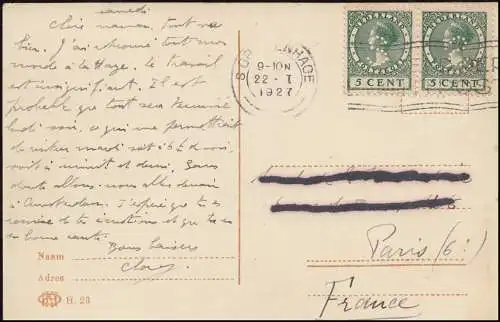 samedi
Chère maman, tout va
bien. J'ai retrouvé tout mon
monde à la Haye. Le travail
est insignifiant. Il est
probable que tout sera terminé
lundi soir, ce qui me permettrait
de rentrer mardi soit à 6h de soir,
soit à minuit et demi. Sans
doute allons-nous aller demain
à Amsterdam. J'espère que tu es
remise de tes émotions et que tu es
en bonne santé.
Bons baisers
Naam
Adres
H. 23
'S GRAVENHAGE
9-10N
22 - I
1927
NEDERLAND
5 CENT
NEDERLAND
5 CENT
Paris (6e)
France